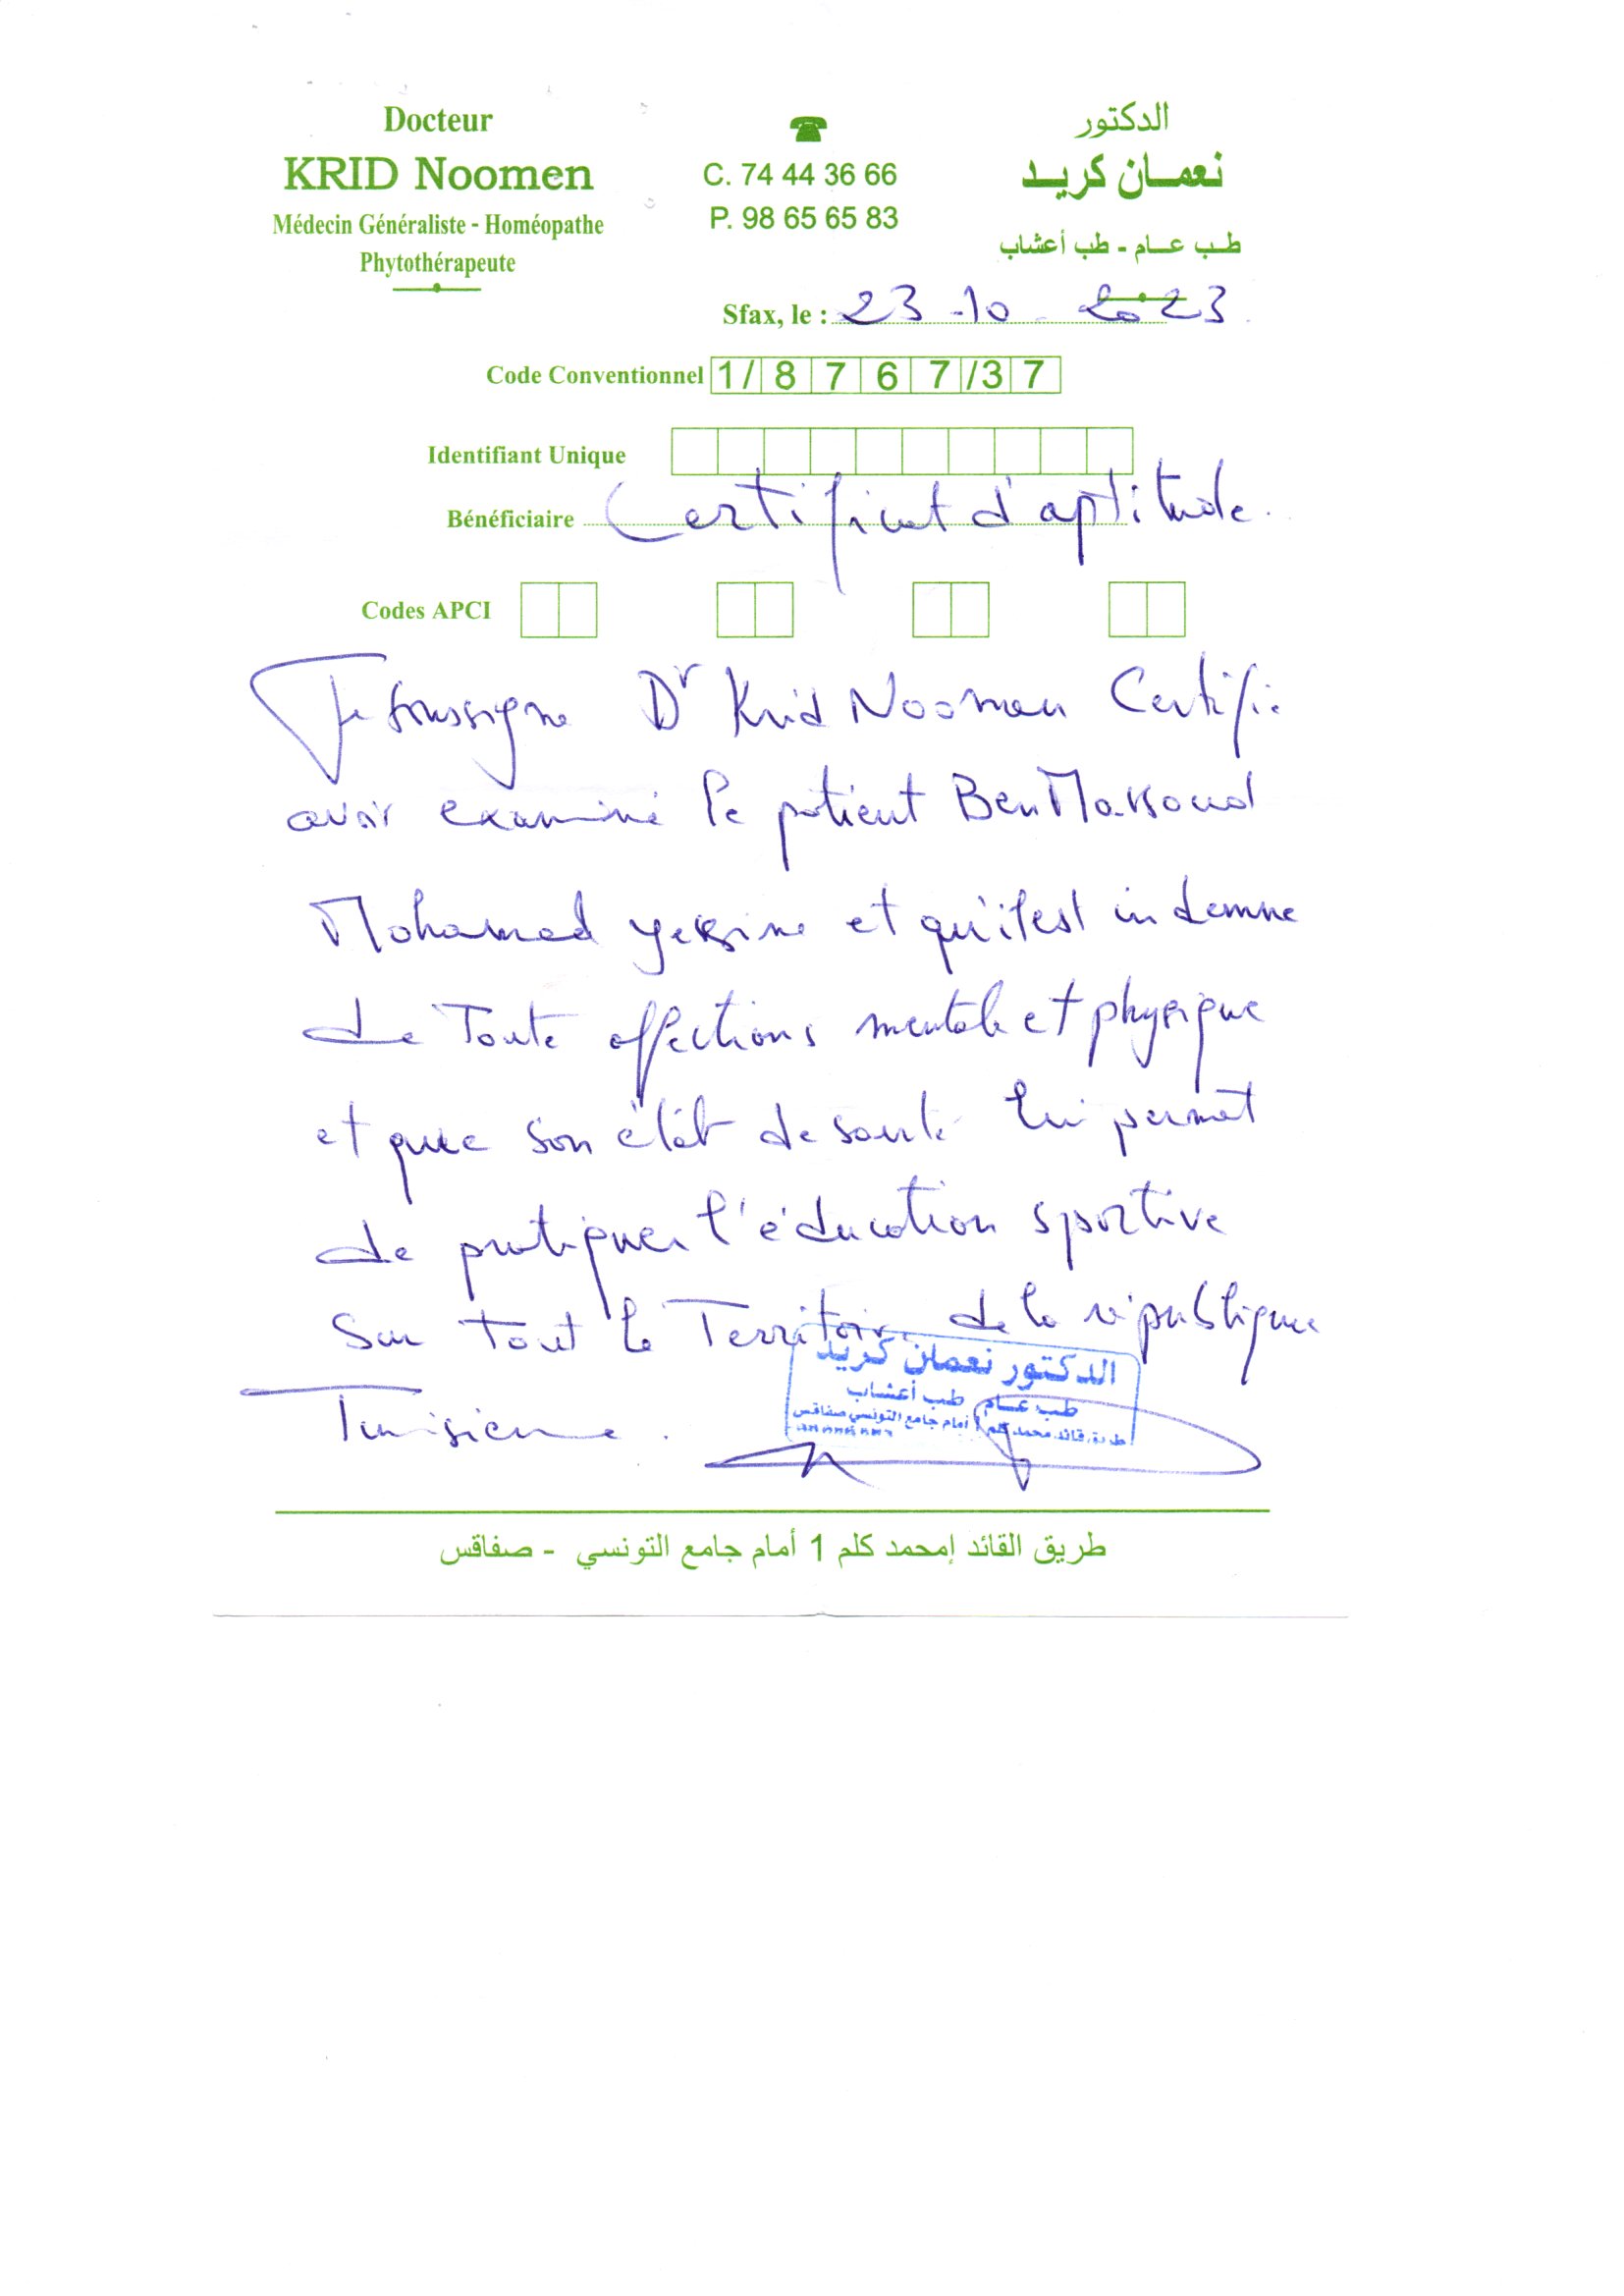 Docteur
KRID Noomen
Médecin Généraliste - Homéopathe
Phytothérapeute
C. 74 44 36 66
P. 98 65 65 83
الدكتور
نعمـان كريـد
طـب عـام - طب أعشاب
Sfax, le : 23 -10 - 2023
Code Conventionnel 1/ 8 7 6 7 /3 7
Identifiant Unique
Bénéficiaire Certificat d'aptitude.
Codes APCI
Je soussigne Dr Krid Noomen Certifie
avoir examiné le patient Ben Massoud
Mohamed yessine et qu'il est indemne
de Toute affections mentale et physique
et que son état de santé lui permet
de pratiquer l'éducation sportive
Sur tout le Territoire de la république
Tunisienne.
الدكتور نعمان كريد
طب عـام طب أعشاب
طريق قائد محمد كلم 1 أمام جامع التونسي صفاقس
طريق القائد إمحمد كلم 1 أمام جامع التونسي - صفاقس